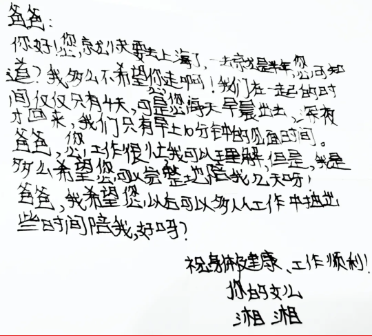 爸爸:
你好!您京就快要去上海了,一去就是半年,您可知
道?我多么不希望你走啊!我们在一起的时
间仅仅只有4天,可是您每天早晨出去,深夜
才回来,我们只有早上10分钟的见面时间。
爸爸,您工作很忙我可以理解,但是,我是
多么希望您可以完整地陪我几天呀!
爸爸,我希望您以后可以多从工作中抽出
些时间陪我,好吗?
祝身体健康、工作顺利!
你的女儿
湘湘